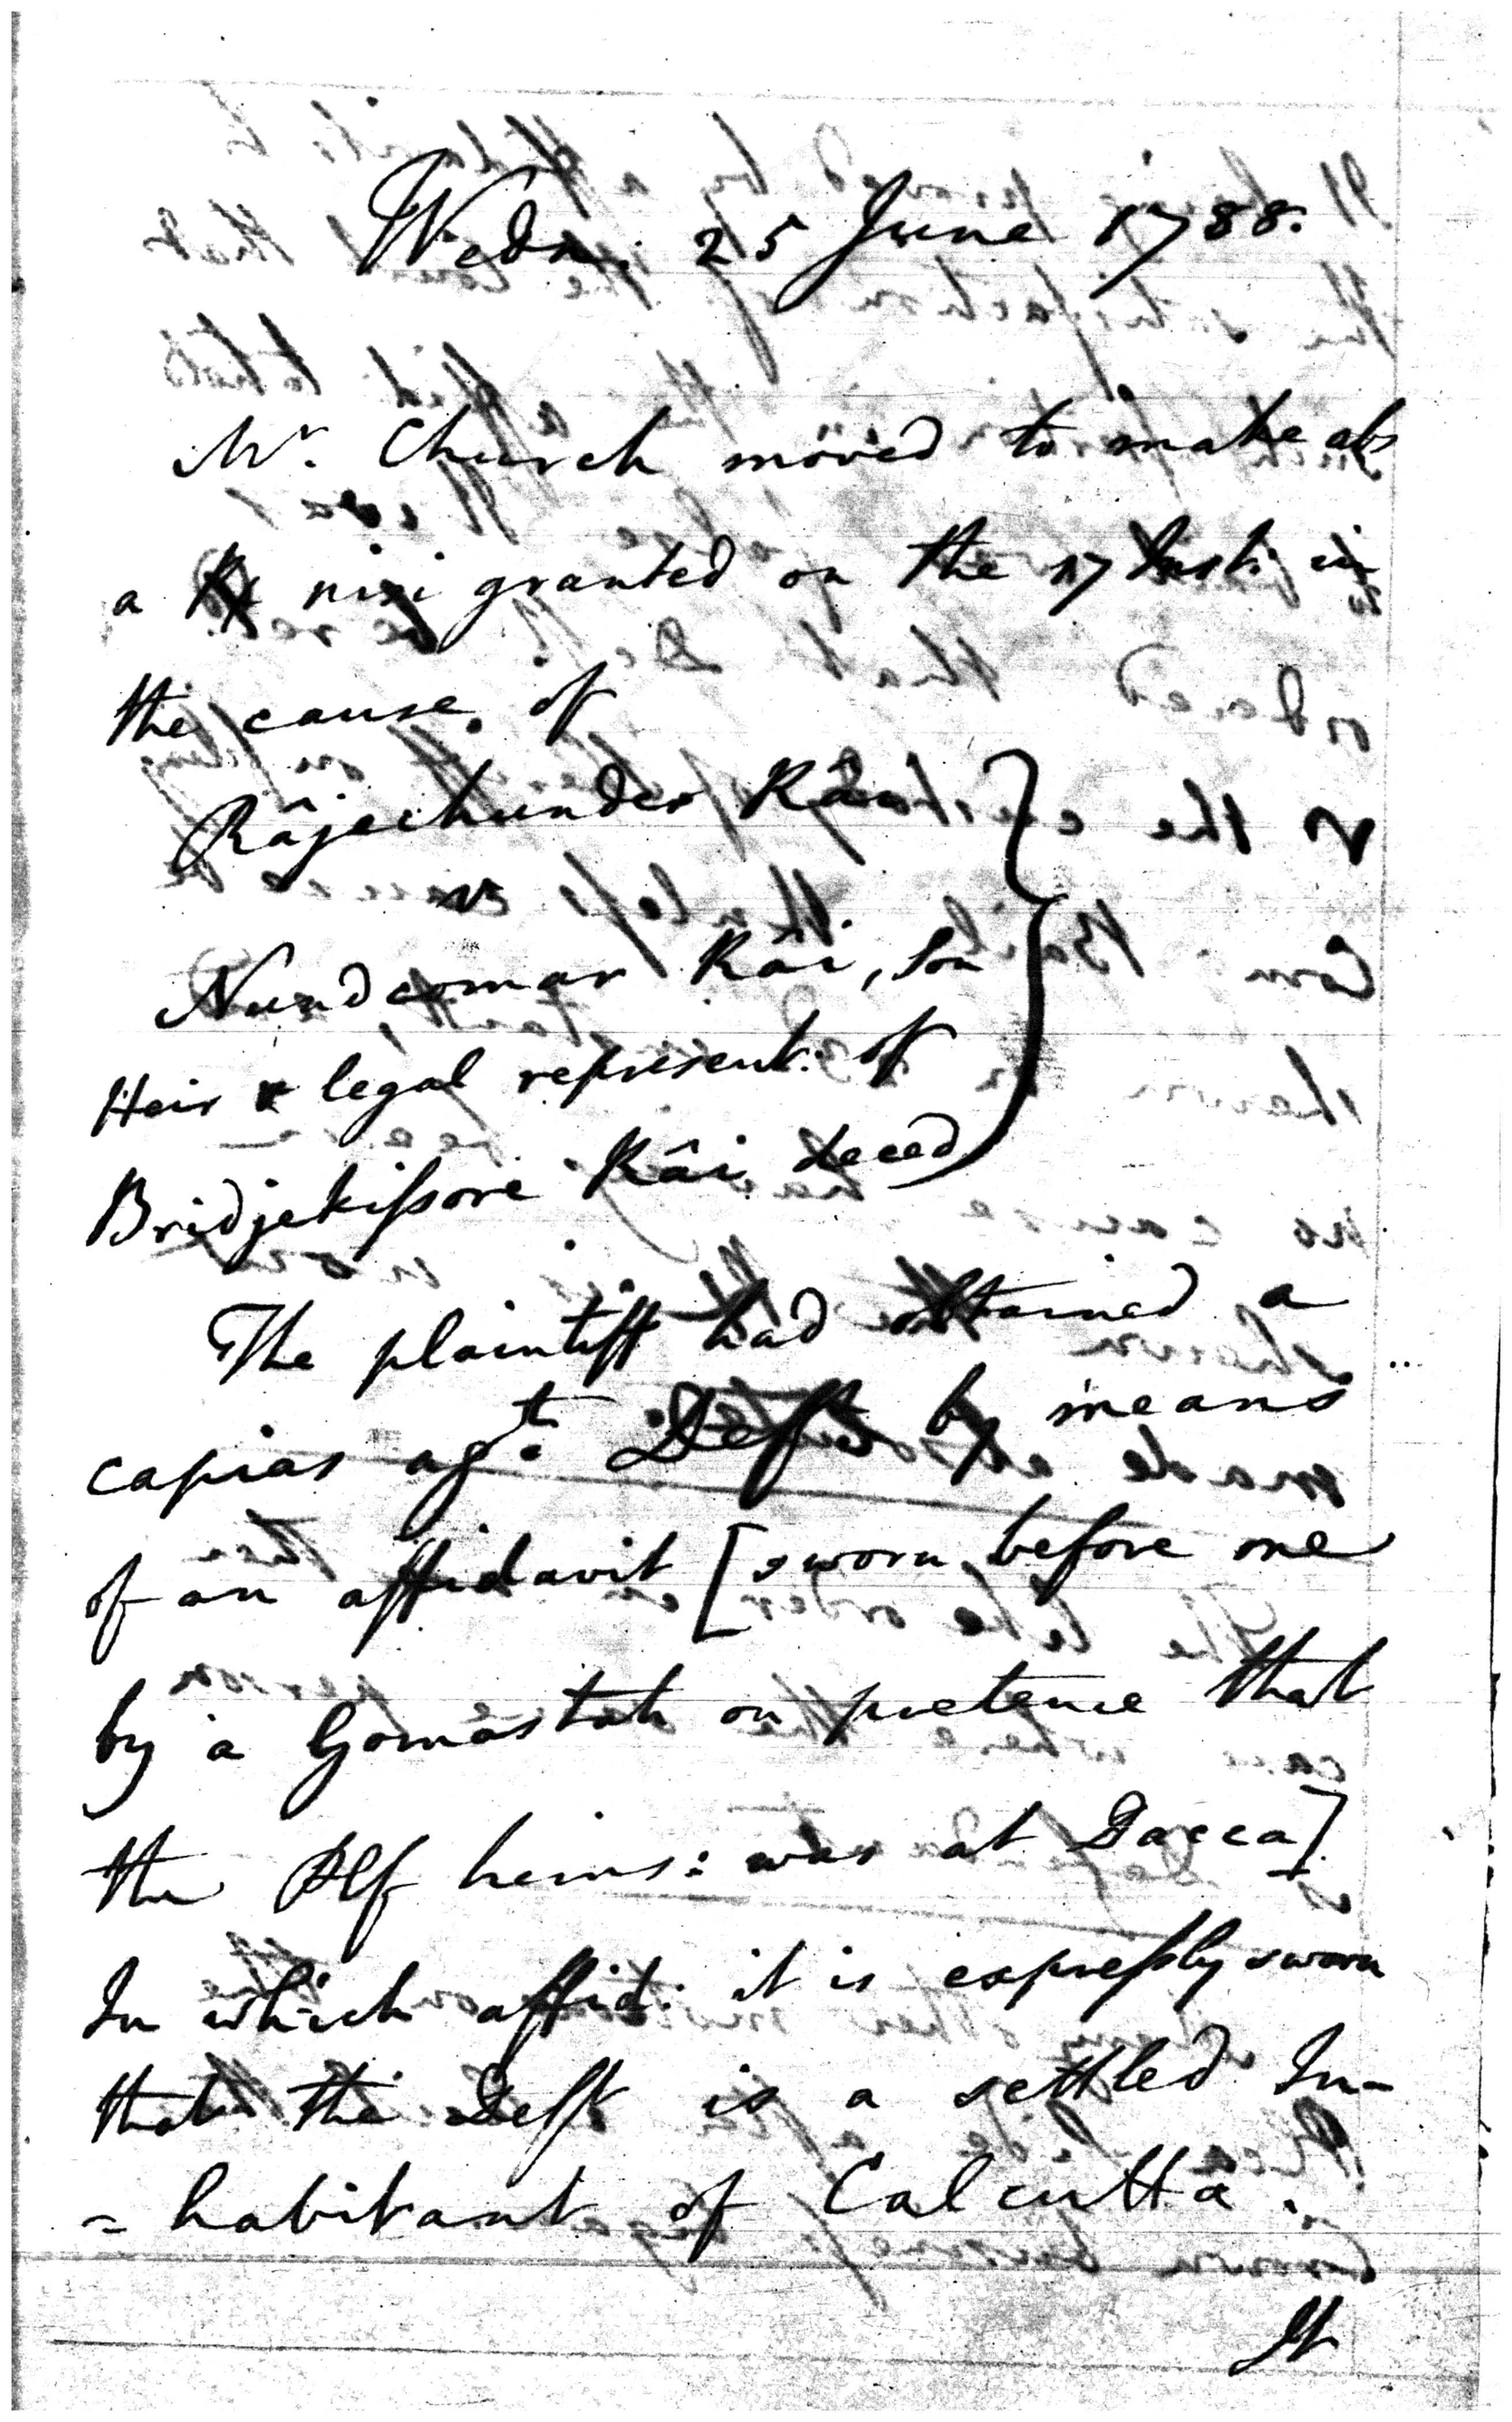 Wedn. 25 June 1788.
Mr. Church moved to make abs
a Rx nisi granted on the 17 Inst. in
the cause of
Râjechunder Râi
vs
Nundcomar Râi, Son
Heir & legal represent: of
Bridjekiſsore Râi deced
The plaintiff had obtained a
capias agt. Deft by means
of an affidavit [sworn before me
by a Gomastah on pretence that
the Plf hims: was at Dacca]
In which affid: it is expreſsly sworn
that the Deft is a settled In-
= habitant of Calcutta.
It